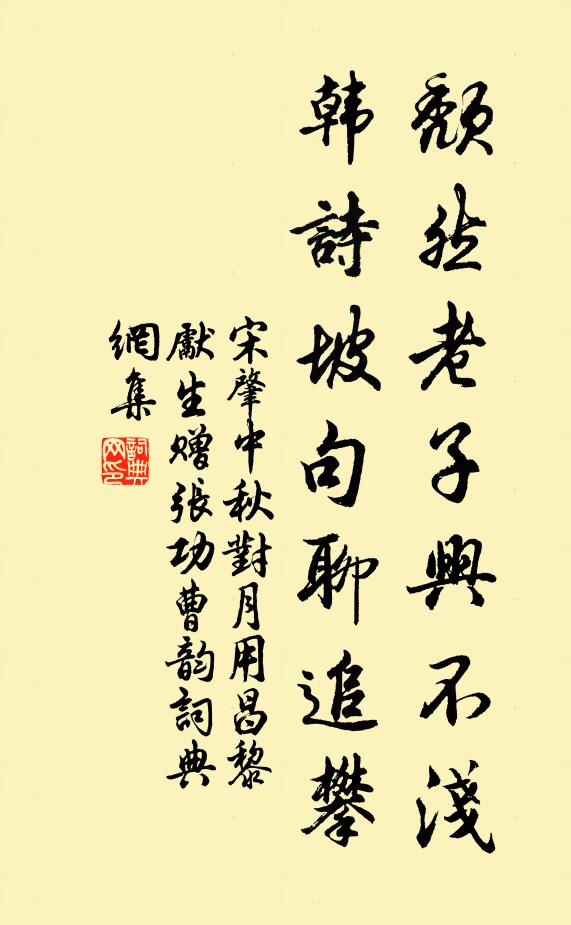 頽然老子興不淺
韩詩坡句聊追攀
宋肇中秋對月用昌黎
獻生赠張功曹韵詞典
網集
詞典网印